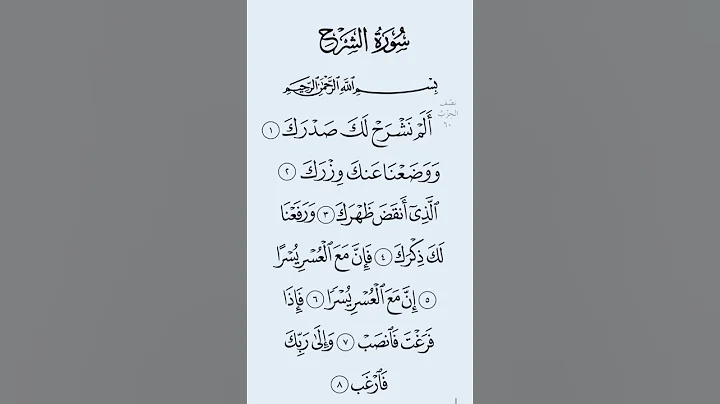 سُورَةُ الشَّرْحِ
بِسْمِ ٱللَّهِ ٱلرَّحْمَٰنِ ٱلرَّحِيمِ
نصف
الحزب
٦٠
أَلَمْ نَشْرَحْ لَكَ صَدْرَكَ ١
وَوَضَعْنَا عَنكَ وِزْرَكَ ٢
ٱلَّذِىٓ أَنقَضَ ظَهْرَكَ ٣ وَرَفَعْنَا
لَكَ ذِكْرَكَ ٤ فَإِنَّ مَعَ ٱلْعُسْرِ يُسْرًا
٥ إِنَّ مَعَ ٱلْعُسْرِ يُسْرًا ٦ فَإِذَا
فَرَغْتَ فَٱنصَبْ ٧ وَإِلَىٰ رَبِّكَ
فَٱرْغَب ٨